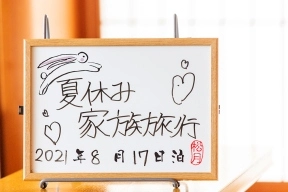 夏休み
家族旅行
2021年8月17日泊
松月